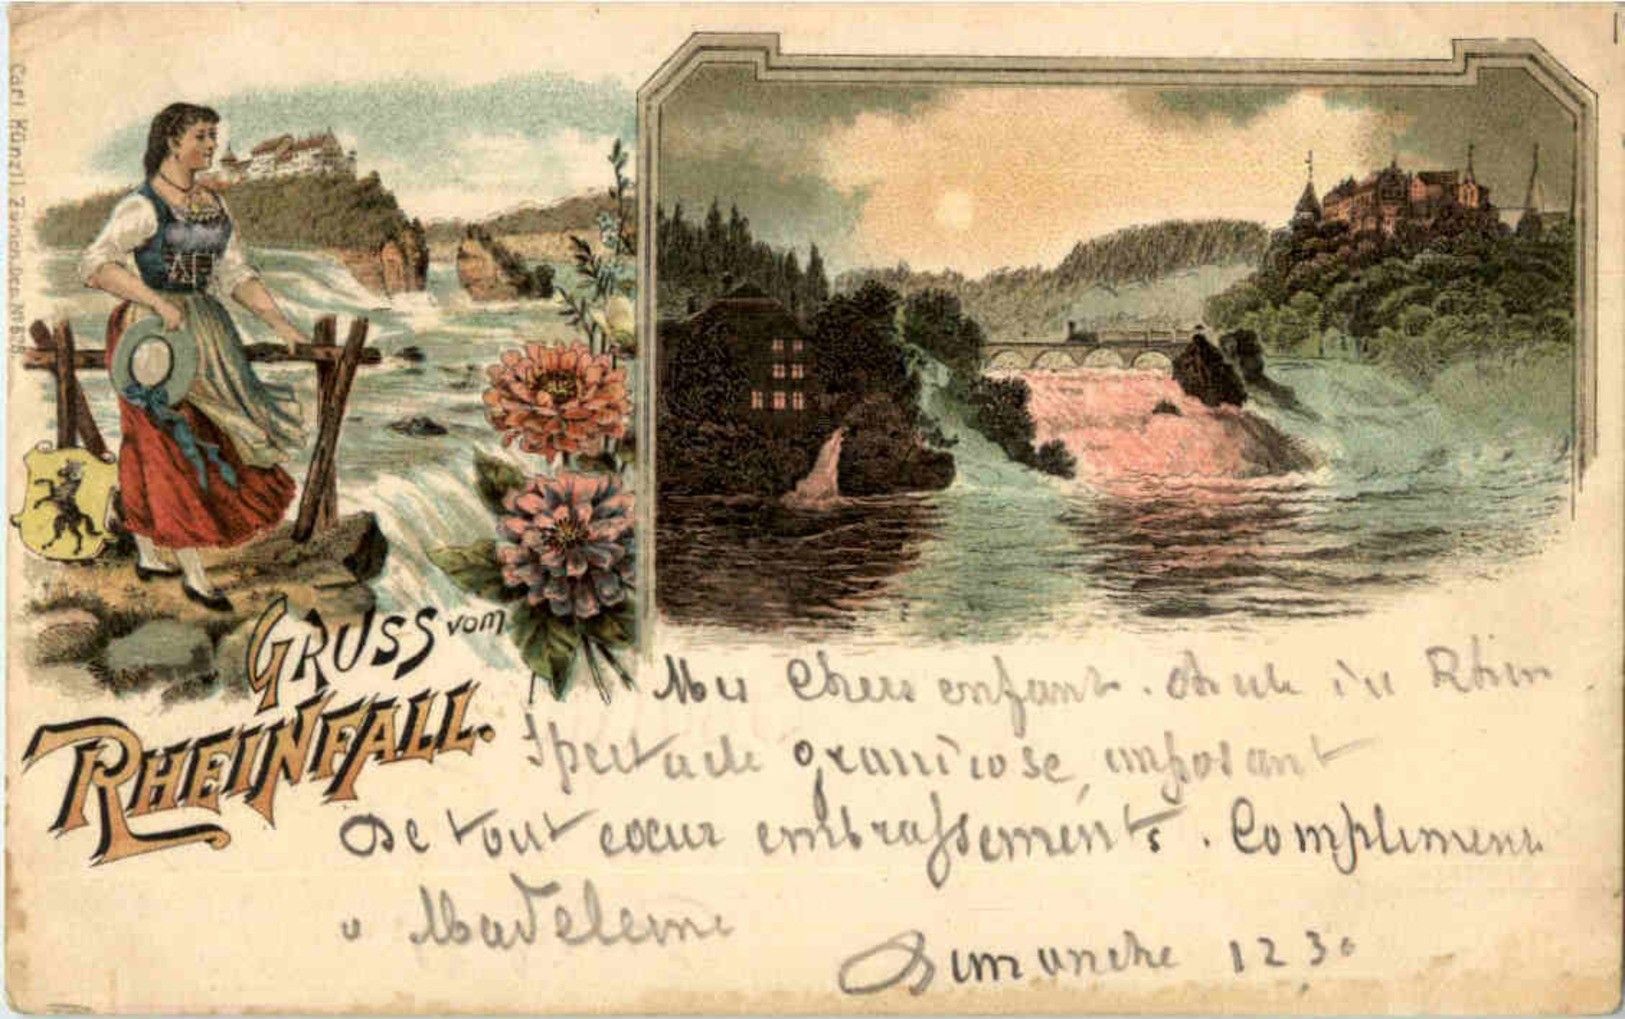 Carl Künzli, Zürich Dep. No 528
GRUSS vom
RHEINFALL.
Mes Chers enfants. Chute du Rhin
Spectacle grandiose, imposant
De tout cœur embrassements. Compliments
a Madeleine
Dimanche 12 30